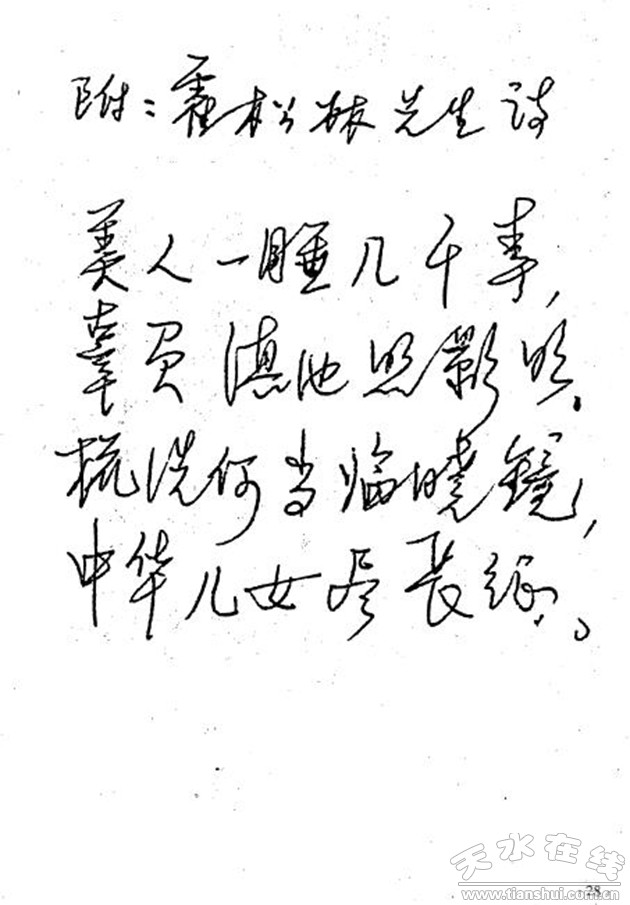 附:霍松林先生诗
美人一睡几千
辜负滇池照影明.
梳洗何当临晓镜,
中华儿女尽长
天水在线
www.tianshui.com.cn
28